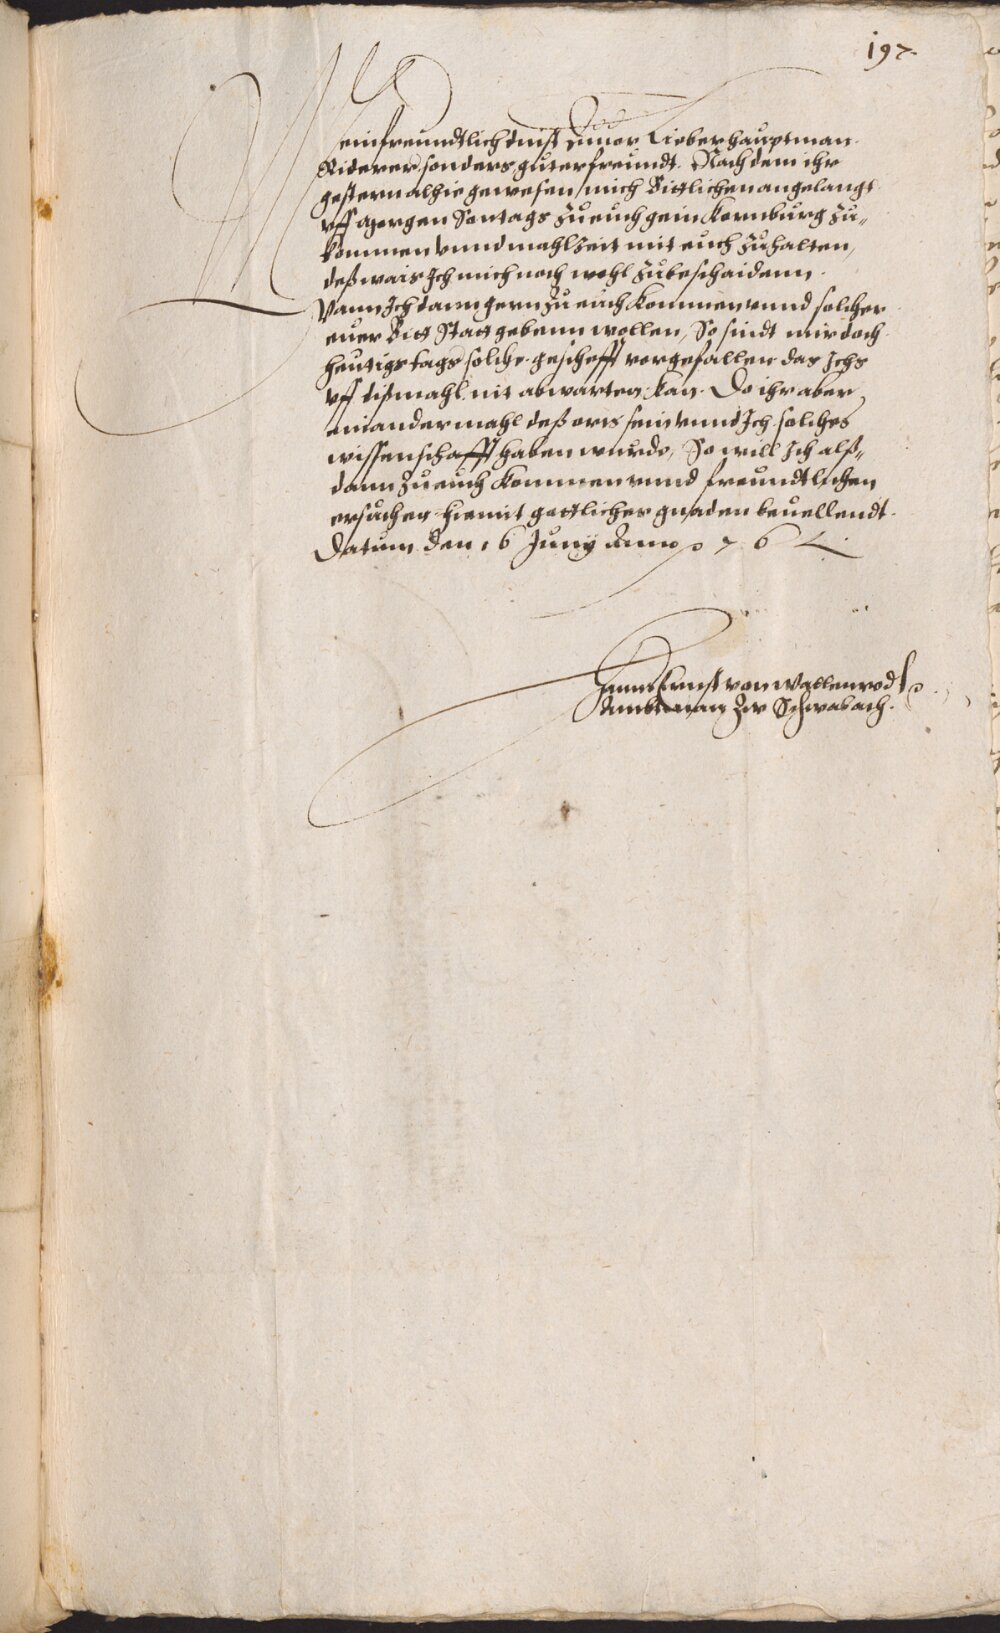 197.
Mein freundtlich dinst zuuor Lieber hauptman
Riterer sonders guter freundt. Nach dem ihr
gestern alhie gewesen, mich Bittlichen angelangt
vff Morgen Sontags zu euch gein Kornburg zu„
kommen vnnd mahlzeit mit euch zuhalten,
deß wais Ich mich noch wohl zubeschaidenn.
Wann Ich dann gern zu euch kommen vnnd solcher
euer Bitt Statt gebenn wollen, So sindt mir doch
heutigs tags solche gescheftt vorgefallen das Ichs
vff dißmahl nit abwarten kan. Do ihr aber
ein andermahl deß orts sein vnnd Ich solches
wissenschafft haben wurde, So will Ich alß„
dann zu euch kommen vnnd freundtlichen
ersuchen hiemit gottlichen gnaden beuellendt.
Datum den 16 Juny Anno
Hanns Ernst von Wallenrodt
Ambtman zw Schwabach.